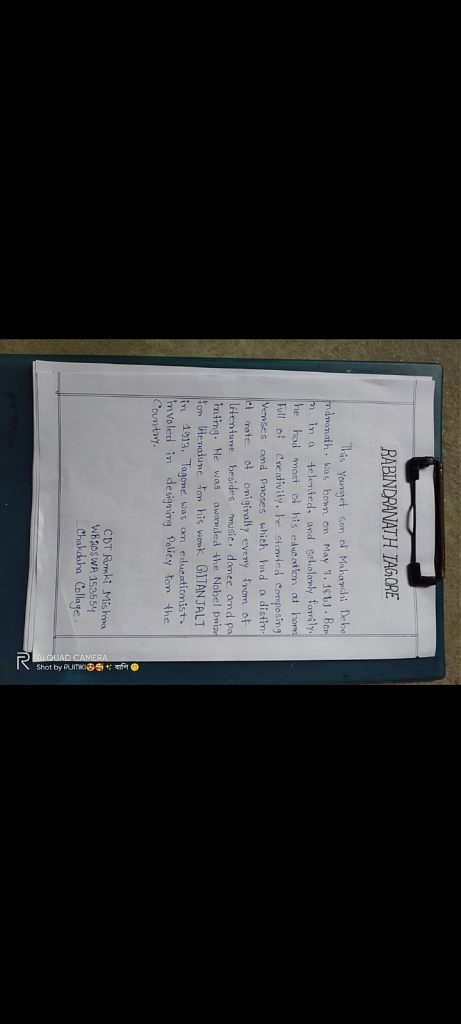 RABINDRANATH TAGORE
This younget son of Maharshi Debe
ndranath. was born on May 7. 1861. Bor
n in a telented. and scholarly family.
he had most of his education at home
Full of Creativity. he started composing
Verses and proses which had a distin-
ct note of originally every from of
literature besides music. dance and pa
inting. He was awarded the Nobel prize
for literature for his work GITANJALI
in 1913. Tagore was an educationist,
involed in designing Policy for the
Country.
CDT. Rumki Mishra
WB20SWA153554
Chakdaha Collage.
R
ALQUAD CAMERA
Shot by RUMKI😍🥰✨ বাপি 😋